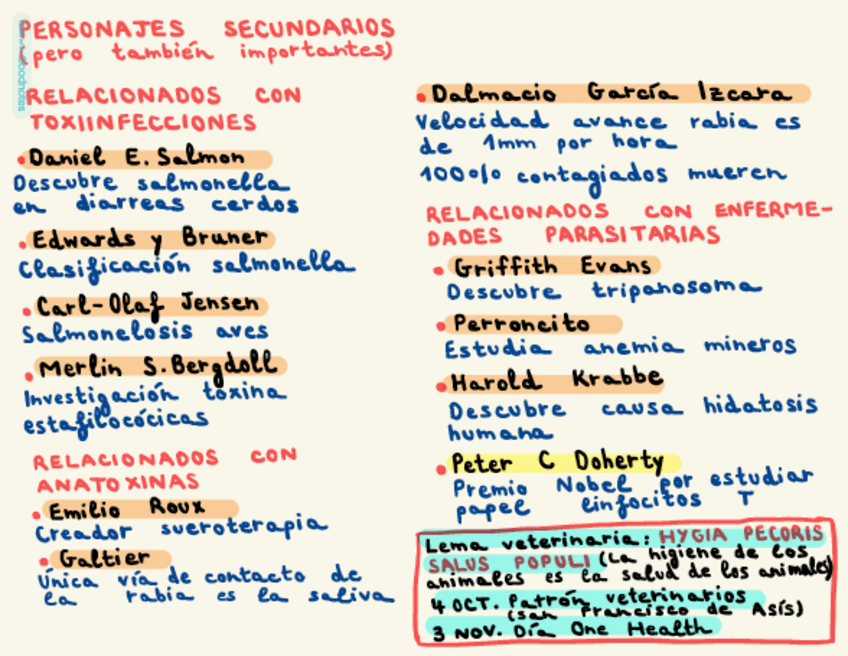 PERSONAJES SECUNDARIOS
(pero también importantes)
RELACIONADOS CON
TOXIINFECCIONES
• Daniel E. Salmon
Descubre salmonella
en diarreas cerdos
• Edwards y Bruner
Clasificación salmonella
• Carl-Olaf Jensen
Salmonelosis aves
• Merlin S. Bergdoll
Investigación toxina
estafilocócicas
RELACIONADOS CON
ANATOXINAS
• Emilio Roux
Creador sueroterapia
• Galtier
Única vía de contacto de
la rabia es la saliva
• Dalmacio García Izcara
Velocidad avance rabia es
de 1mm por hora
100% contagiados mueren
RELACIONADOS CON ENFERME-
DADES PARASITARIAS
• Griffith Evans
Descubre tripanosoma
• Perroncito
Estudia anemia mineros
• Harold Krabbe
Descubre causa hidatosis
humana
• Peter C Doherty
Premio Nobel por estudiar
papel linfocitos T
Lema veterinaria: HYGIA PECORIS
SALUS POPULI (La higiene de los
animales es la salud de los animales)
4 OCT. Patrón veterinarios
(san Francisco de Asís)
3 NOV. Día One Health